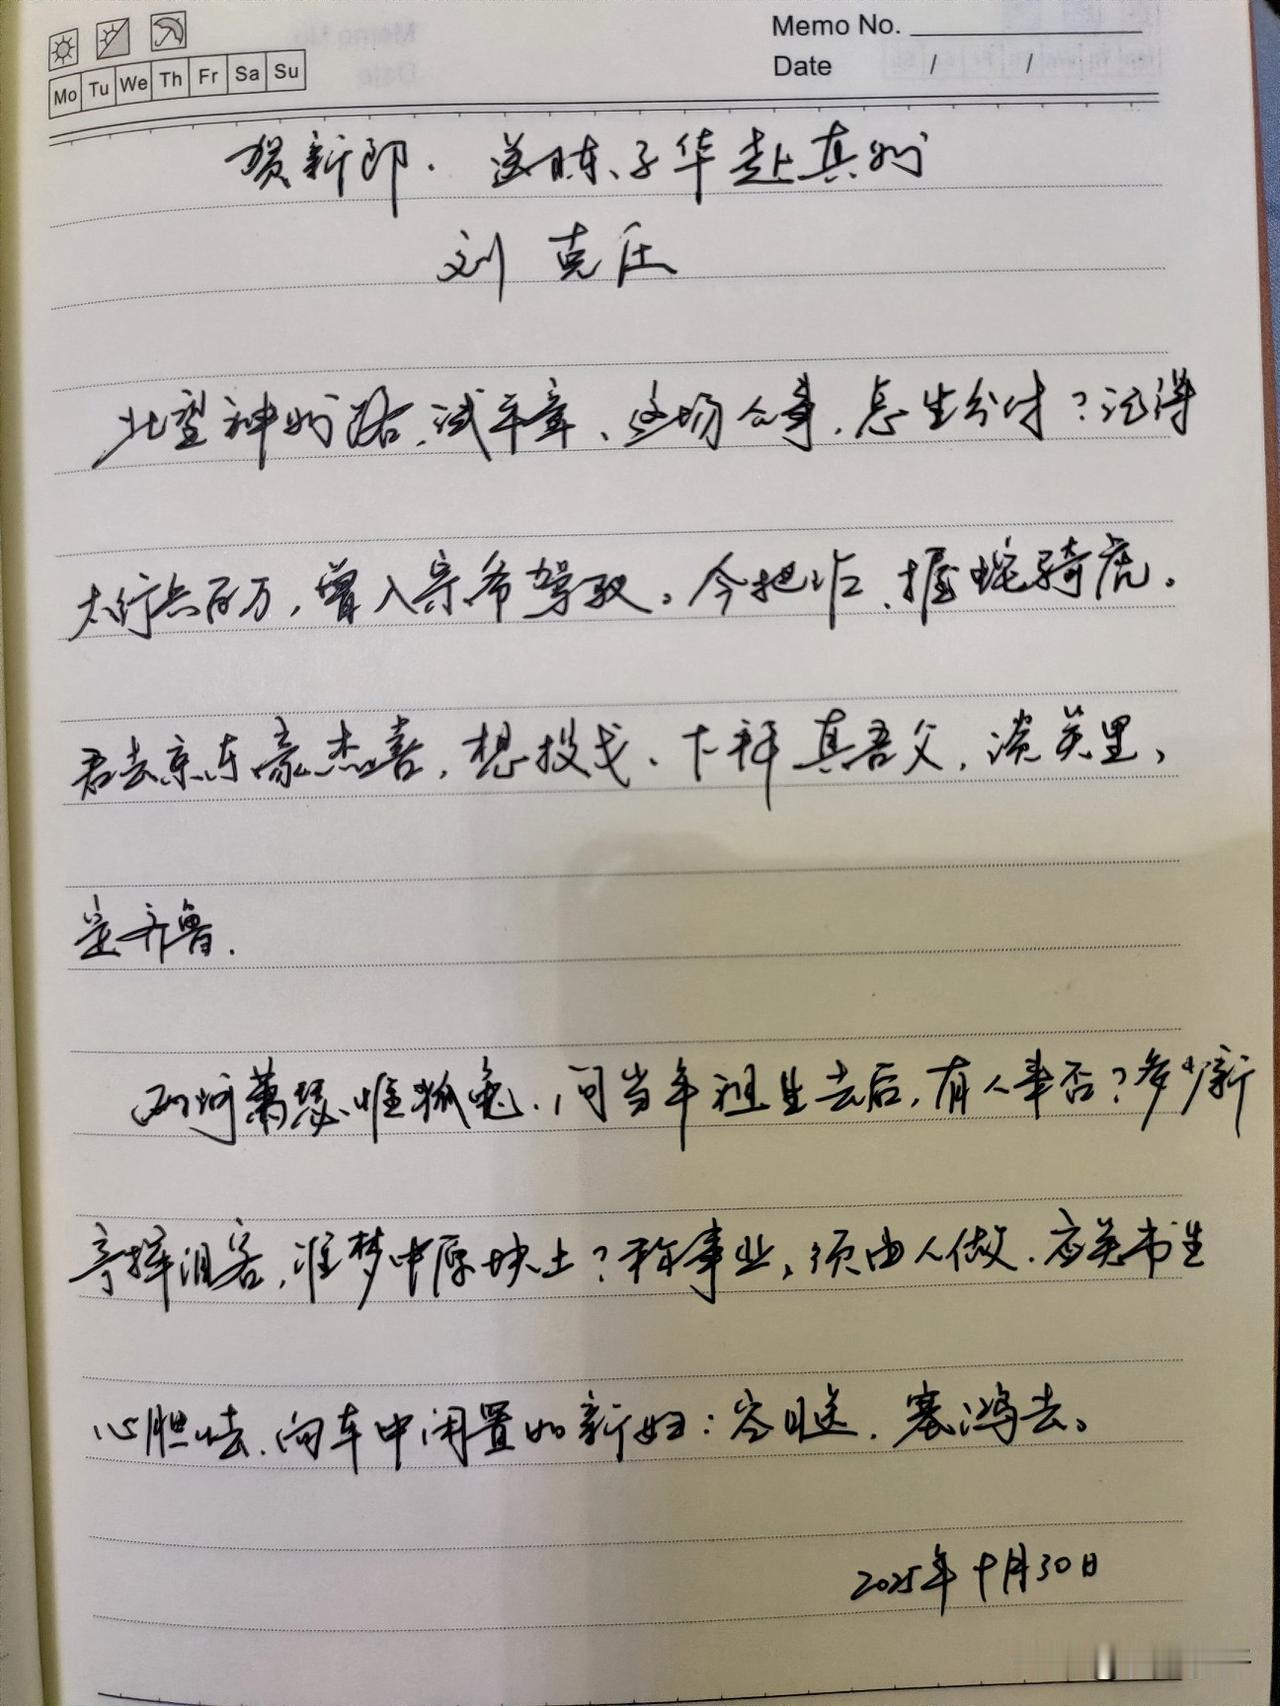 Memo No.
Mo Tu We Th Fr Sa Su
Date / /
贺新郎·送陈子华赴真州
刘克庄
北望神州路,试平章、这场公事,怎生分付?记得
太行兵百万,曾入宗爷驾驭。今把作、握蛇骑虎。
君去京东豪杰喜,想投戈、下拜真吾父,谈笑里,
定齐鲁.
两河萧瑟惟狐兔.问当年祖生去后,有人来否?多少新
亭挥泪客,谁梦中原块土?称事业,须由人做.应笑书生
心胆怯,向车中闭置如新妇:空目送,塞鸿去。
2025年十月30日